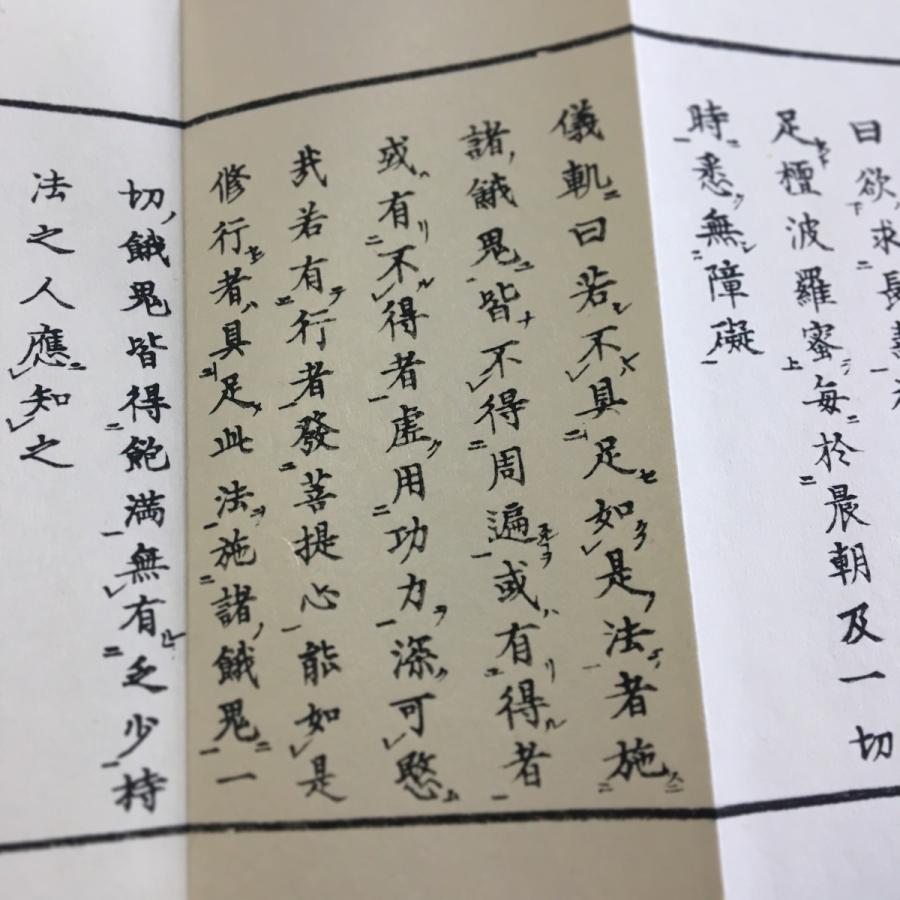 曰欲求長壽
足檀波羅蜜每於晨朝及一切
時悉無障礙
儀軌曰若不具足如是法者施
諸餓鬼皆不得周遍或有得者
或有不得者虛用功力深可愍
哉若有行者發菩提心能如是
修行者具足此法施諸餓鬼一
切餓鬼皆得飽満無有乏少持
法之人應知之